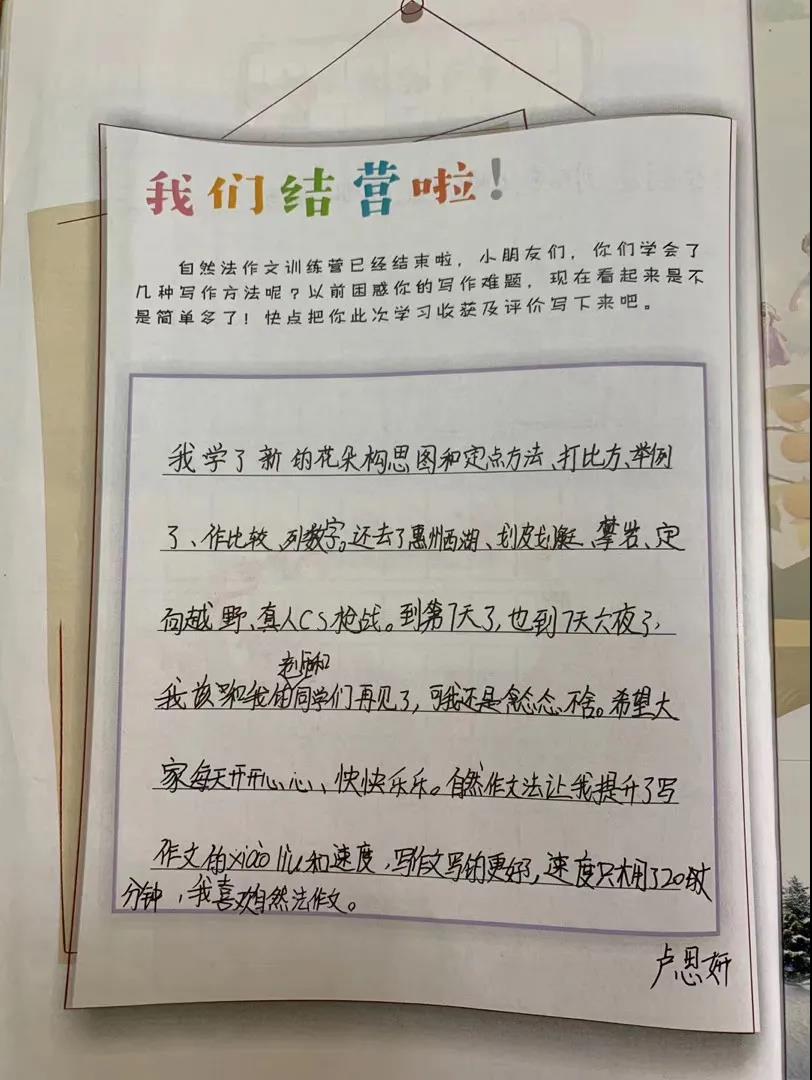 我们结营啦!
自然法作文训练营已经结束啦，小朋友们，你们学会了
几种写作方法呢？以前困惑你的写作难题，现在看起来是不
是简单多了！快点把你此次学习收获及评价写下来吧。
我学了新的花朵构思图和定点方法、打比方、举例
了、作比较、列数字。还去了惠州西湖、划皮划艇、攀岩、定
向越野、真人CS枪战。到第7天了，也到7天六夜了，
老师和
我该和我的同学们再见了，可我还是念念不舍。希望大
家每天开开心心、快快乐乐。自然作文法让我提升了写
作文的xiào liu和速度，写作文写的更好，速度只用了20
分钟，我喜欢自然法作文。
卢思妍